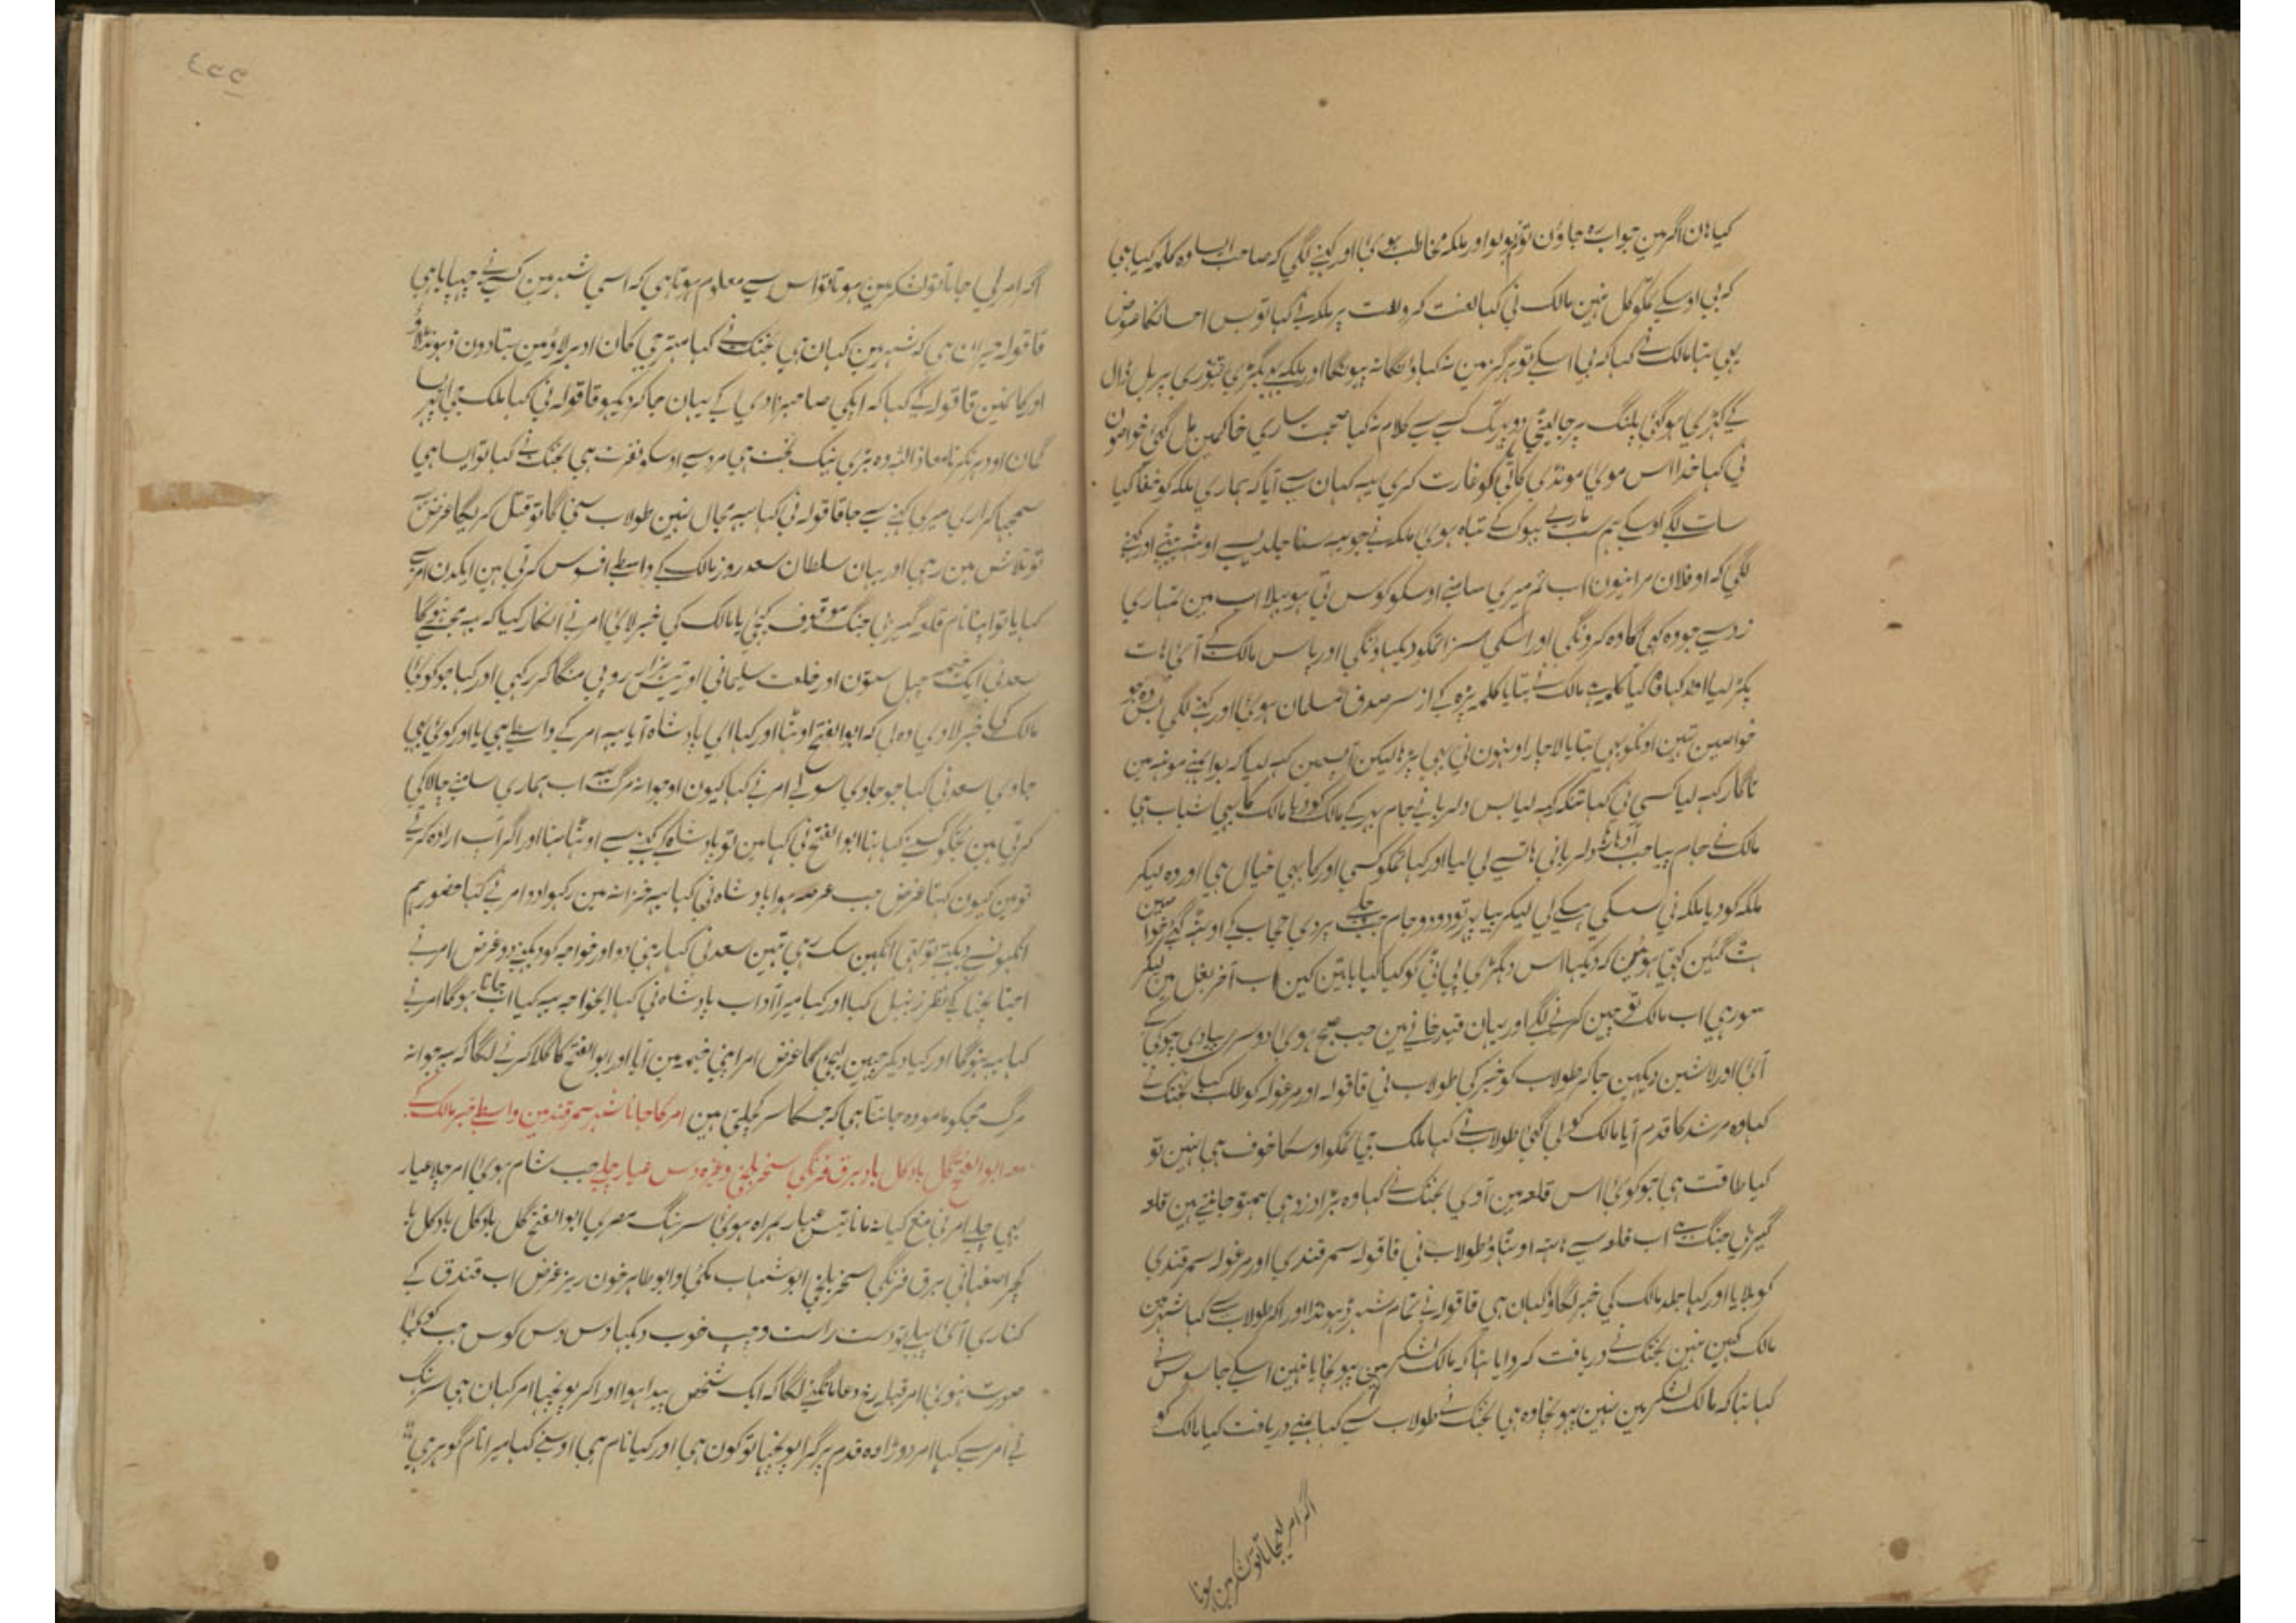 کیا ہان اگر مین جواب رہ جاؤن تو اور ملکہ مخاطب ہوئی اور کہنے لگی کہ صاحب ایسا وہ کلمہ کیا ہی
کہ بی اوسکے تمکو کل نہین مالک نی کہا لعنت کرو لعنت پر ملکہ نے کہا تو بس احسانکا عوض
یہی تہا مالک نے کہا کہ بی اسکے تو ہرگز مین نہ کہاؤنگا نہ پیونگا اور ملکہ بگڑی تیوری پر بل ڈال
کے کہڑی ہو گئی پلنگ پر جا لیٹی دوپہر تک کسی سے کلام نہ کیا صحبت ساری خاکمین مل گئی خواصون
نی کہا خدا اس موی موندی کاٹی کو غارت کری یہ کہان سے آیا کہ ہماری ملکہ کو خفا کیا
سات لگے اوسکے ہم سب ماری بہوک کے تباہ ہوی ملکہ نے جو یہ سنا جلدیسے اوٹہہ بیٹہی اور کہنے
لگی کہ او فلان مرانیون اب تم میری سامنے اوسکو کوس تی ہو بہلا اب مین تمہاری
زد سے جو وہ کہی گا وہ کرونگی اور اسکی سزا تمکو دیکہاونگی اور پاس مالک کے آئی ہات
پکڑ لیا اور کہا کیا کلمہ ہے مالک نے بتایا کلمہ پڑہ کے از سر صدق مسلمان ہوی اور کہنے لگی بس وہ جو
خواصین تہین اونکو بہی بتایا لاچار اونہون نی بہی پڑہا لیکن آپسمین کہہ لیا کہ بوا اپنے مونہہ مین
ناگار کہہ لیا کسی نی کہا تنکہ کہہ لیا بس دلربا نے جام بہر کے مالک کو دیا مالک کا بہی شباب ہی
مالک نے جام پیا جب آدہا رہا دلربا نی ہات سے لی لیا اور کہا تمکو کسی اور کا بہی خیال ہی اور وہ لیکر
ملکہ کو دیا ملکہ نی سسکی ہسکے لی لیکر پیا پہر تو دو دو جام جب چلے پردی حجاب کے اوٹہہ گئے خواصین
ہٹ گئین کہتی ہوئین کہ دیکہا اس دگہڑی پی پاتی کو کیا کیا باتین کین اب آخر بغل مین لیکر
سو رہی اب مالک تو چین کرنے لگے اور یہان قیدخانے مین جب صبح ہوئی دوسری پیادی چوکی کے
آئی اور لاشین دیکہین جا کر طولاب کو خبر کی طولاب نی قاقولہ اور مرغولہ کو طلب کیا بختک نے
کہا وہ مرشد کا قدم آیا مالک کو لی گئی طولاب نے کہا ملک جی تمکو اوسکا خوف ہی نہین تو
کیا طاقت ہی جو کوئی اس قلعہ مین آوی بختک نے کہا وہ بڑا دزد ہی ہمتو جانتے ہین قلعہ
گیری جنگ ہے اب قلعہ سے ہاتہہ اوٹہاؤ طولاب نی قاقولہ سمرقندی اور مرغولہ سمرقندی
کو بلایا اور کہا جلد مالک کی خبر لگاؤ کہان ہی قاقولہ نے تمام شہر ڈہونڈا اور آکر طولاب سے کہا شہر مین
مالک کہین نہین بختک نے دریافت کروایا تہا کہ مالک لشکر مین پہونچا یا نہین اسکے جاسوس نے
کہا تہا کہ مالک لشکر مین نہین پہونچا وہ ہی بختک نے طولاب سے کہا ہمنے دریافت کیا مالک کو
اگر امر لیجاتا تو لشکر مین ہوتا
اگر امر لی جاتا تو لشکر مین ہوتا تو اس سے معلوم ہوتا ہی کہ اسی شہر مین کسی نے چہپایا ہی
قاقولہ حیران ہی کہ شہر مین کہان ہی بختک نے کہا مہتر جی کان ادہر لاؤ مین بتا دون ڈہونڈلاؤ
اور کا نہین قاقولہ کے کہا کہ آپکی صاحبزادی کے یہان جا کر دیکہو قاقولہ نی کہا ملک جی ایسا
گمان اودہر نکرنا معاذ اللہ وہ بڑی نیک بخت ہی مرد سے اوسکو نفرت ہی بختک نے کہا تو ایسا ہی
سمجہا کر اری میری کہنے سے جا قاقولہ نی کہا یہ مجال نہین طولاب سنی گا تو قتل کریگا غرض یہ
تو تلاش مین رہی اور یہان سلطان سعد روز مالک کے واسطے افسوس کرتی ہین ایکدن امر سے
کہا یا تو اپنا نام قلعہ گیری جنگ موقوف کیجئی یا مالک کی خبر لائی امر نے انکار کیا کہ یہ مجہسے نہوگا
سعد نی ایک خیمہ چہل ستون اور خلعت سلیمانی اور تیس ہزار روپی منگا کر رکہی اور کہا جو کوئی
مالک کی خبر لاوی وہ لی کہ ابو الفتح اوٹہا اور کہا ای پادشاہ آیا یہ امر کے واسطے ہی یا اور کوئی بہی
جاوی سعد نی کہا جو جاوی سو لے امر نے کہا کیون او جوانہ مرگ یہ اب ہماری سامنے چالاکی
کرتی ہین تجکو کسنے کہا تہا ابو الفتح نی کہا مین تو پادشاہ کے کہنے سے اوٹہا تہا اور اگر آپ ارادہ کرتے
تو مین کیون کہتا غرض جب عرصہ ہوا پادشاہ نی کہا یہ خزانہ مین رکہوا دو امر نے کہا حضور ہم
آنکہونسے دیکہتے تو لیتی آنکہین سک رہی تہین سعد نی کہا رہنی دو اور خواجہ کو دیکہنے دو غرض امر نے
اچنا بچنا کے نظر زنبیل کیا اور کہا میرا آداب پادشاہ نی کہا ایخواجہ یہ کیا اب جانا ہوگا امر نے
کہا یہ نہوگا اور کیا دیکر چہین لیجیگا غرض امر اپنی خیمہ مین آیا اور ابو الفتح کا گلا کرنے لگا کہ یہ جوانہ
مرگ مجکو مامو وہ جانتا ہی کہ جسکا سر کچلتی ہین امر کا جانا شہر سمرقند مین واسطے خبر مالک کے
معہ ابو الفتح گل باد کل باد برق فرنگی سنجر بلخی وغیرہ دس عیار چلے جب شام ہوئی امر چلا عیار
بہی چلے امر نی منع کیا نہ مانا تیس عیار ہمراہ ہوئی سرہنگ مصری ابو الفتح گل باد کل باد کل با
کچر اصفہانی برق فرنگی سنجر بلخی ابو شہاب مکی و ابو طاہر خون ریز غرض اب خندق کے
کناری آئی پہلے تو دست راست و چپ خوب دیکہا دس دس کوس جب کوئی
صورت نہوئی امر قبلہ رخ دعا مانگنے لگا کہ ایک شخص پیدا ہوا اور آکر پوچہا امر کہان ہی سرہنگ
نے امر سے کہا امر دوڑا وہ قدم پر گرا پوچہا تو کون ہی اور کیا نام ہی اوسنے کہا میرا نام گوہر ہی